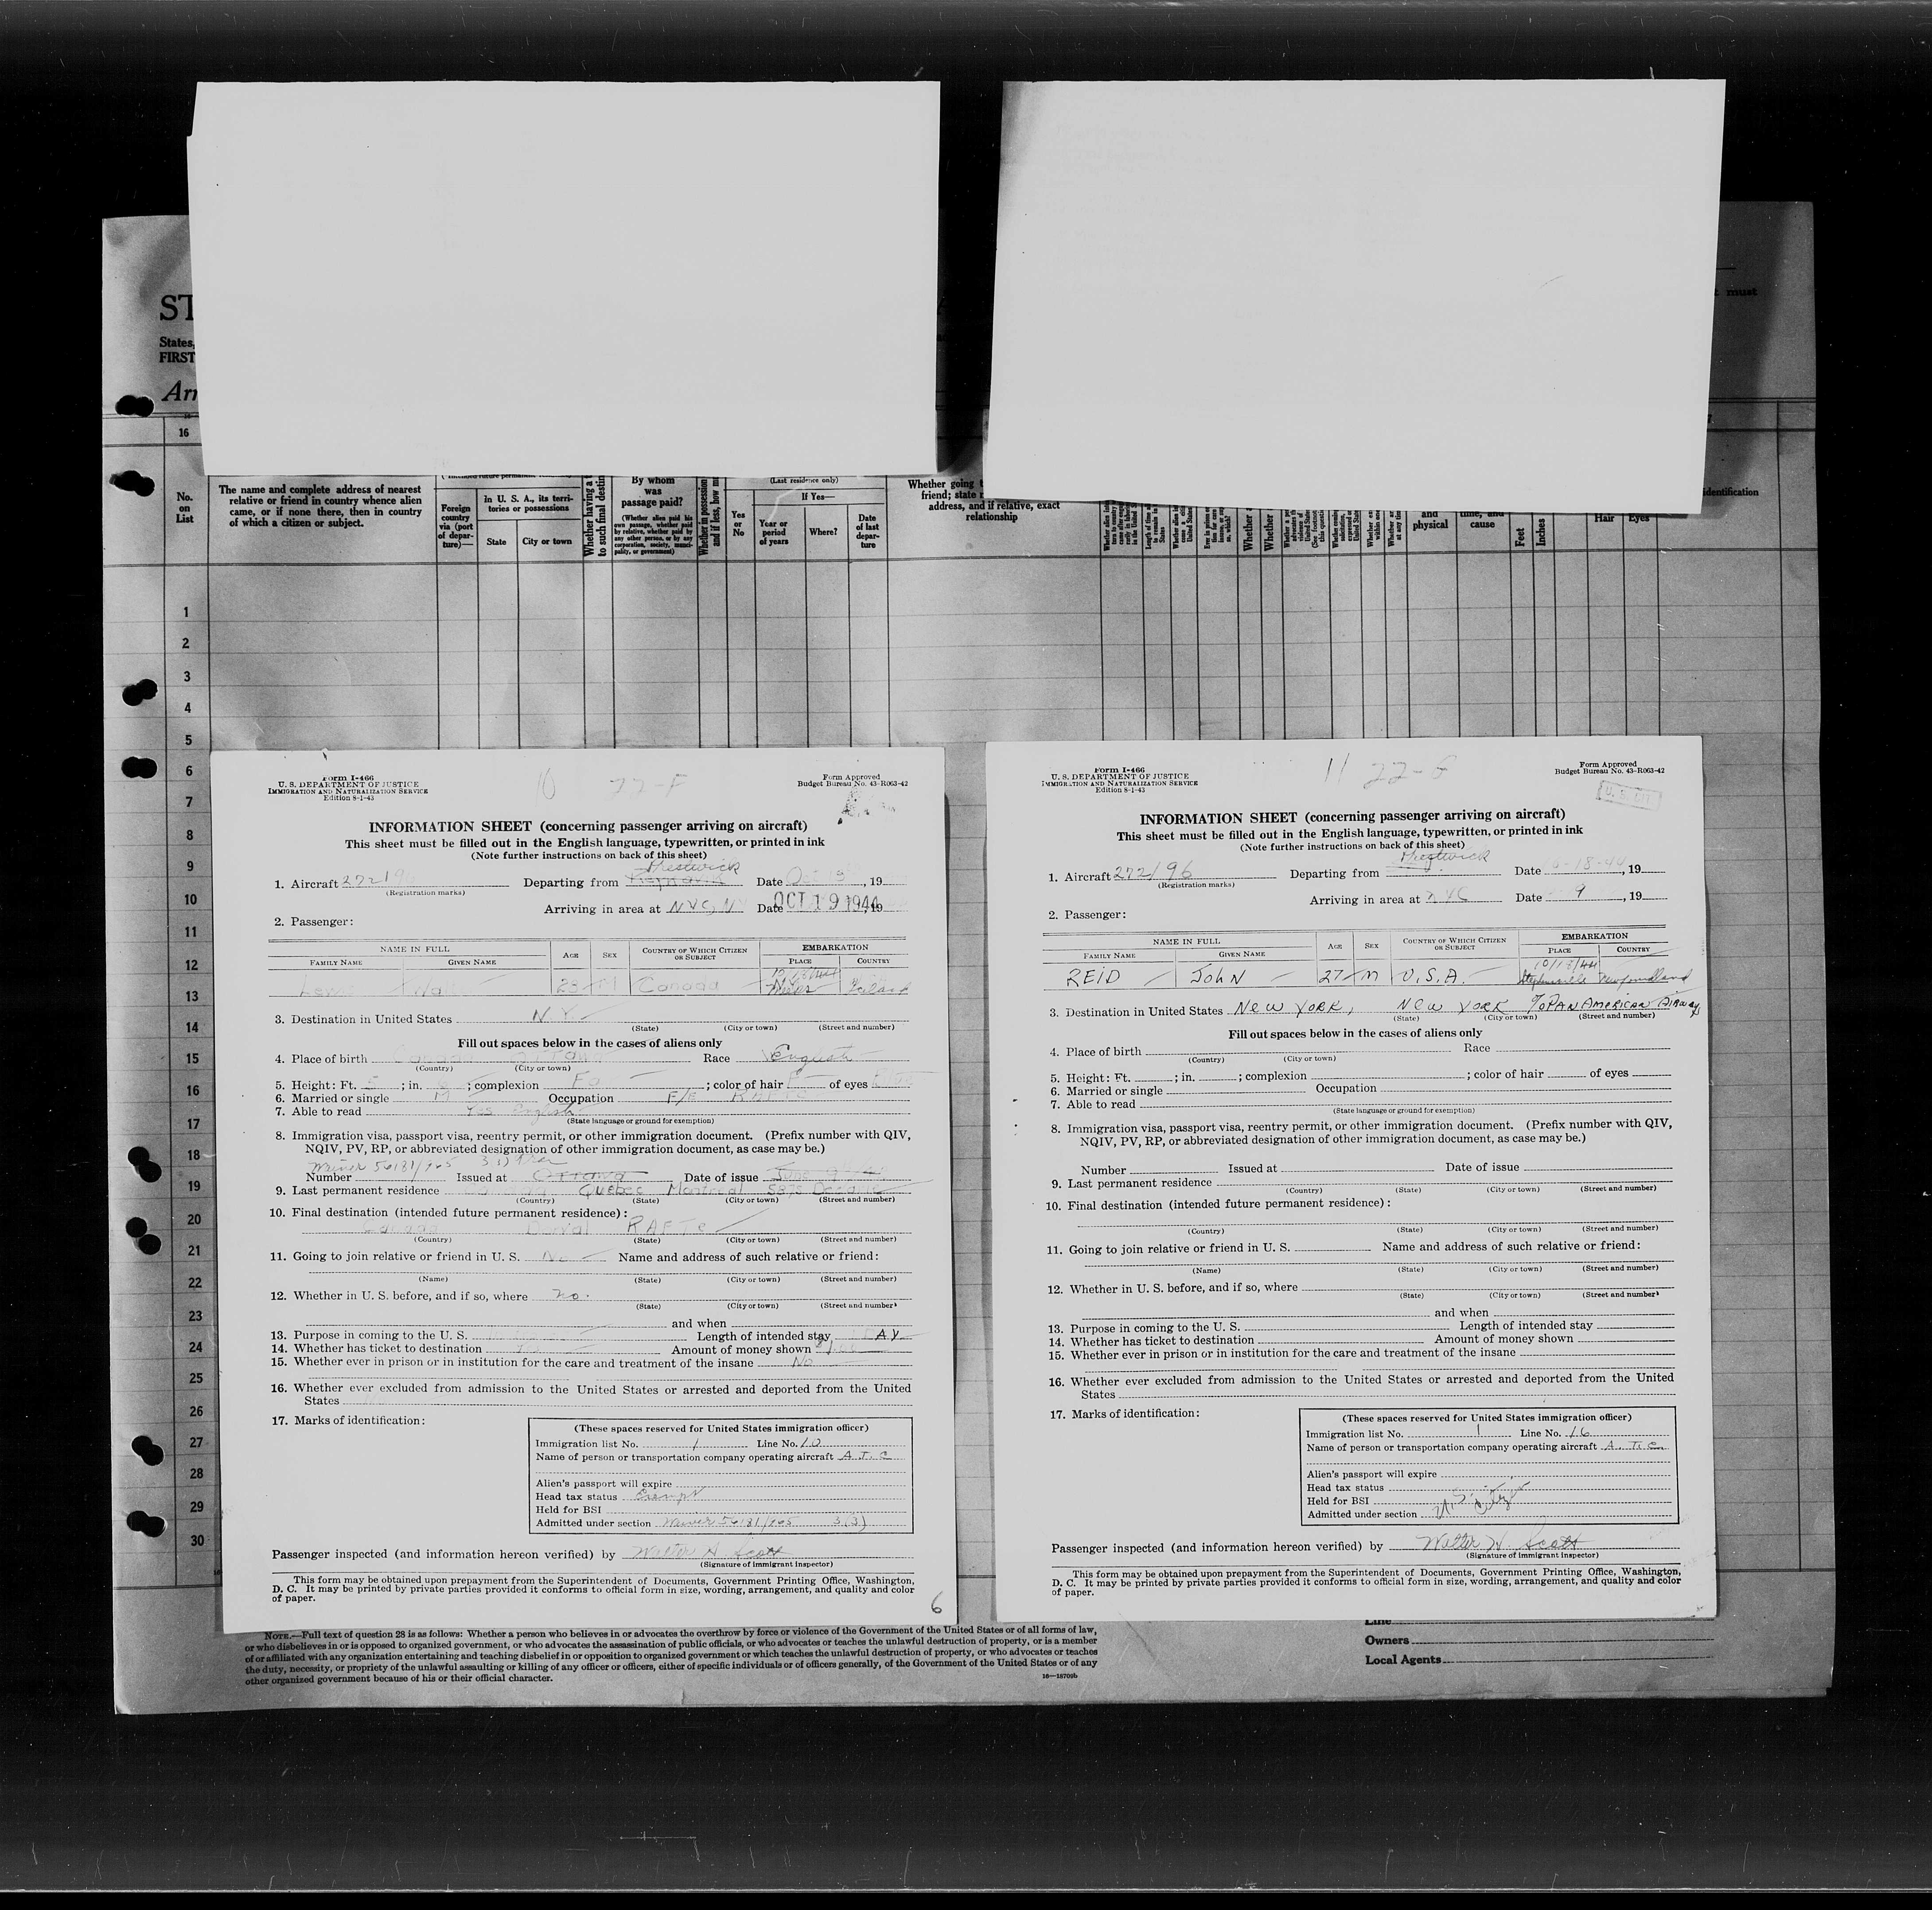 ST
States,
FIRST
Arr
must
16
No.
on
List
The name and complete address of nearest
relative or friend in country whence alien
came, or if none there, then in country
of which a citizen or subject.
Foreign
country
via (port
of depar-
ture)—
in U. S. A., its terri-
tories or possessions
State
City or town
Whether having a
to such final destin
By whom
was
passage paid?
(Whether alien paid his
own passage, whether paid
by relative, whether paid by
any other person, or by any
corporation, society, munici-
pality, or government)
Whether in possession
and if less, how m
(Last residence only)
Yes
or
No
If Yes—
Year or
period
of years
Where?
Date
of last
depar-
ture
Whether going t
friend; state
address, and if relative, exact
relationship
and
physical
time, and
cause
Feet
Inches
Hair
Eyes
identification
1
2
3
4
5
6
7
8
9
10
11
12
13
14
15
16
17
18
19
20
21
22
23
24
25
26
27
28
29
30
Form I-466
U. S. DEPARTMENT OF JUSTICE
IMMIGRATION AND NATURALIZATION SERVICE
Edition 8-1-43
10 22-F
Form Approved
Budget Bureau No. 43-R063-42
INFORMATION SHEET (concerning passenger arriving on aircraft)
This sheet must be filled out in the English language, typewritten, or printed in ink
(Note further instructions on back of this sheet)
Prestwick
1. Aircraft 272196 Departing from Date Oct 18, 19
(Registration marks)
Arriving in area at NYC, NY Date OCT 19 1944, 19
2. Passenger:
NAME IN FULL
FAMILY NAME
GIVEN NAME
AGE
SEX
COUNTRY OF WHICH CITIZEN
OR SUBJECT
EMBARKATION
PLACE
COUNTRY
23 M Canada
3. Destination in United States N.Y.
(State) (City or town) (Street and number)
Fill out spaces below in the cases of aliens only
4. Place of birth Canada Ottawa Race English
(Country) (City or town)
5. Height: Ft. 5; in. ; complexion Fa ; color of hair of eyes
6. Married or single M Occupation F/E RAFTC
7. Able to read Yes English
(State language or ground for exemption)
8. Immigration visa, passport visa, reentry permit, or other immigration document. (Prefix number with QIV,
NQIV, PV, RP, or abbreviated designation of other immigration document, as case may be.)
Waiver 56131/965
Number Issued at Ottawa Date of issue June
9. Last permanent residence Quebec Montreal
(Country) (State) (City or town) (Street and number)
10. Final destination (intended future permanent residence):
Canada Dorval RAFTC
(Country) (State) (City or town) (Street and number)
11. Going to join relative or friend in U. S. No Name and address of such relative or friend:
(Name) (State) (City or town) (Street and number)
12. Whether in U. S. before, and if so, where no.
(State) (City or town) (Street and number)
and when
13. Purpose in coming to the U. S. Length of intended stay DAY
14. Whether has ticket to destination Amount of money shown
15. Whether ever in prison or in institution for the care and treatment of the insane No
16. Whether ever excluded from admission to the United States or arrested and deported from the United
States
17. Marks of identification:
(These spaces reserved for United States immigration officer)
Immigration list No. 1 Line No. 10
Name of person or transportation company operating aircraft A. T. C
Alien's passport will expire
Head tax status Exempt
Held for BSI
Admitted under section Waiver 56131/965 3(3)
Passenger inspected (and information hereon verified) by Walter H. Scott
(Signature of immigrant inspector)
This form may be obtained upon prepayment from the Superintendent of Documents, Government Printing Office, Washington,
D. C. It may be printed by private parties provided it conforms to official form in size, wording, arrangement, and quality and color
of paper.
6
Form I-466
U. S. DEPARTMENT OF JUSTICE
IMMIGRATION AND NATURALIZATION SERVICE
Edition 8-1-43
11 22-F
Form Approved
Budget Bureau No. 43-R063-42
INFORMATION SHEET (concerning passenger arriving on aircraft)
This sheet must be filled out in the English language, typewritten, or printed in ink
(Note further instructions on back of this sheet)
Prestwick
1. Aircraft 272196 Departing from Date 10-18-44, 19
(Registration marks)
Arriving in area at NYC Date 9, 19
2. Passenger:
NAME IN FULL
FAMILY NAME
GIVEN NAME
AGE
SEX
COUNTRY OF WHICH CITIZEN
OR SUBJECT
EMBARKATION
PLACE
COUNTRY
10/18/44
REID JOHN 27 M U.S.A. Stephenville Newfoundland
3. Destination in United States NEW YORK, NEW YORK % PAN AMERICAN AIRWAYS
(State) (City or town) (Street and number)
Fill out spaces below in the cases of aliens only
4. Place of birth Race
(Country) (City or town)
5. Height: Ft. ; in. ; complexion ; color of hair of eyes
6. Married or single Occupation
7. Able to read
(State language or ground for exemption)
8. Immigration visa, passport visa, reentry permit, or other immigration document. (Prefix number with QIV,
NQIV, PV, RP, or abbreviated designation of other immigration document, as case may be.)
Number Issued at Date of issue
9. Last permanent residence
(Country) (State) (City or town) (Street and number)
10. Final destination (intended future permanent residence):
(Country) (State) (City or town) (Street and number)
11. Going to join relative or friend in U. S. Name and address of such relative or friend:
(Name) (State) (City or town) (Street and number)
12. Whether in U. S. before, and if so, where
(State) (City or town) (Street and number)
and when
13. Purpose in coming to the U. S. Length of intended stay
14. Whether has ticket to destination Amount of money shown
15. Whether ever in prison or in institution for the care and treatment of the insane
16. Whether ever excluded from admission to the United States or arrested and deported from the United
States
17. Marks of identification:
(These spaces reserved for United States immigration officer)
Immigration list No. 1 Line No. 16
Name of person or transportation company operating aircraft A. T. C.
Alien's passport will expire
Head tax status
Held for BSI
Admitted under section U.S. Citz
Passenger inspected (and information hereon verified) by Walter H. Scott
(Signature of immigrant inspector)
This form may be obtained upon prepayment from the Superintendent of Documents, Government Printing Office, Washington,
D. C. It may be printed by private parties provided it conforms to official form in size, wording, arrangement, and quality and color
of paper.
NOTE.—Full text of question 28 is as follows: Whether a person who believes in or advocates the overthrow by force or violence of the Government of the United States or of all forms of law,
or who disbelieves in or is opposed to organized government, or who advocates the assassination of public officials, or who advocates or teaches the unlawful destruction of property, or is a member
of or affiliated with any organization entertaining and teaching disbelief in or opposition to organized government or which teaches the unlawful destruction of property, or who advocates or teaches
the duty, necessity, or propriety of the unlawful assaulting or killing of any officer or officers, either of specific individuals or of officers generally, of the Government of the United States or of any
other organized government because of his or their official character.
16—18709b
Line
Owners
Local Agents